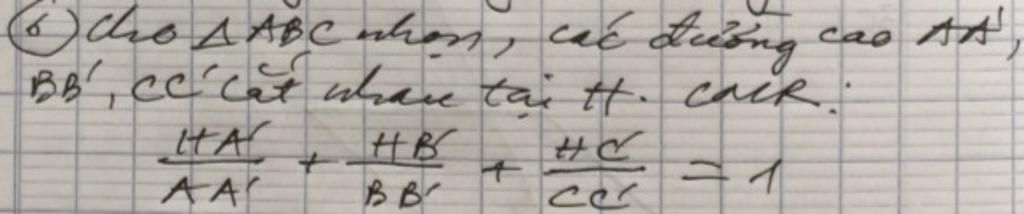 ⑥ Cho ΔABC nhọn, các đường cao AA',
BB', CC' cắt nhau tại H. CMR:
HA'/AA' + HB'/BB' + HC'/CC' = 1